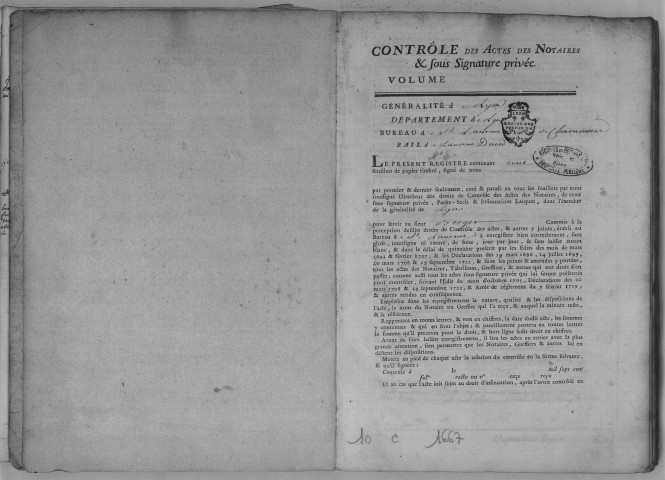 CONTRÔLE DES ACTES DES NOTAIRES
& sous Signature privée.
VOLUME
GÉNÉRALITÉ d Lyon
DÉPARTEMENT d Lyon
BUREAU d St Laurent de Chamousset
BAIL d Laurent David
LE PRÉSENT REGISTRE contenant
feuillets de papier timbré, signé de nous
par premier & dernier seulement, coté & parafé en tous ses feuillets par nous
soussigné Directeur des droits de Contrôle des Actes des Notaires, de ceux
sous signature privée, Petits-Scels & Insinuations Laïques, dans l'étendue
de la généralité de Lyon
pour servir au sieur Berger Commis à la
perception desdits droits de Contrôle des actes, & autres y joints, établi au
Bureau d St Laurent à enregistrer bien correctement, sans
glose, interligne ni rature, de suite, jour par jour, & sans laisser aucun
blanc, & dans le délai de quinzaine prescrit par les Edits des mois de mars
1693 & février 1707, & les Déclarations des 19 mars 1696, 14 juillet 1699,
20 mars 1708 & 29 septembre 1722, & sous les peines & amendes y portées,
tous les actes des Notaires, Tabellions, Greffiers, & autres qui ont droit d'en
passer; comme aussi tous les actes sous signature privée qui lui seront présentés
pour contrôler, suivant l'Edit du mois d'octobre 1705, Déclarations des 20
mars 1708 & 29 septembre 1722, & Arrêt de règlement du 7 février 1719,
& autres rendus en conséquence.
Emploiera dans les enregistremens la nature, qualité & les dispositions de
l'acte, le nom du Notaire ou Greffier qui l'a reçu, & auquel la minute reste,
& sa résidence.
Rapportera en toutes lettres, & non en chiffres, la date dudit acte, les sommes
y contenues & qui en font l'objet; & pareillement portera en toutes lettres
la somme qu'il percevra pour le droit, & hors ligne ledit droit en chiffres.
Avant de faire lesdits enregistremens, il lira les actes en entier avec la plus
grande attention, sans permettre que les Notaires, Greffiers & autres lui en
dictent les dispositions.
Mettra au pied de chaque acte la relation du contrôle en la forme suivante,
& qu'il signera:
Contrôlé à le mil sept cent
fol. recto ou v° case reçu
Et au cas que l'acte soit sujet au droit d'insinuation, après l'avoir contrôlé en
10 C 1667